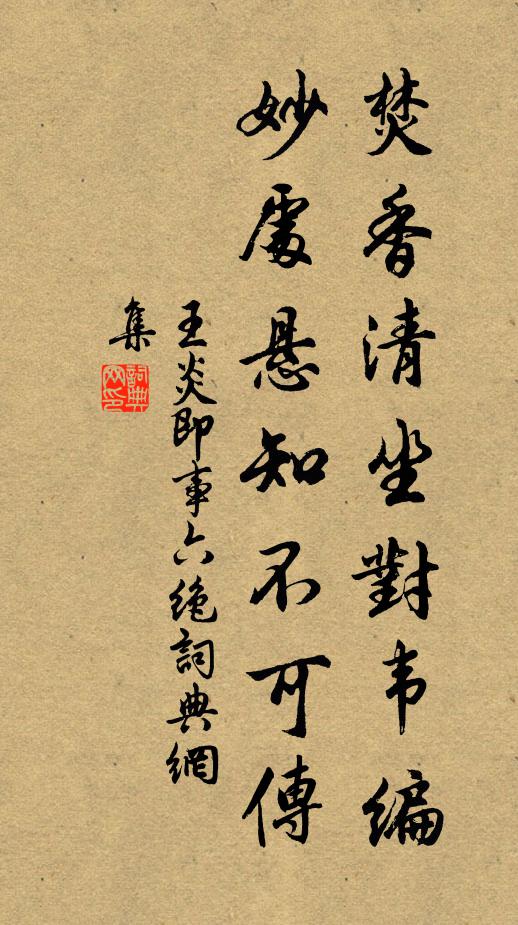 焚香清坐對韦编
妙處悬知不可傳
王炎即事六绝詞典網
集
詞典网印